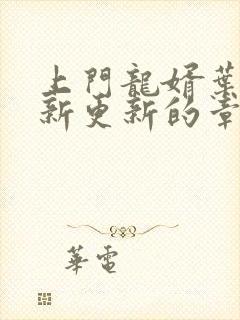 上門龍婿葉
新更新的章
華電